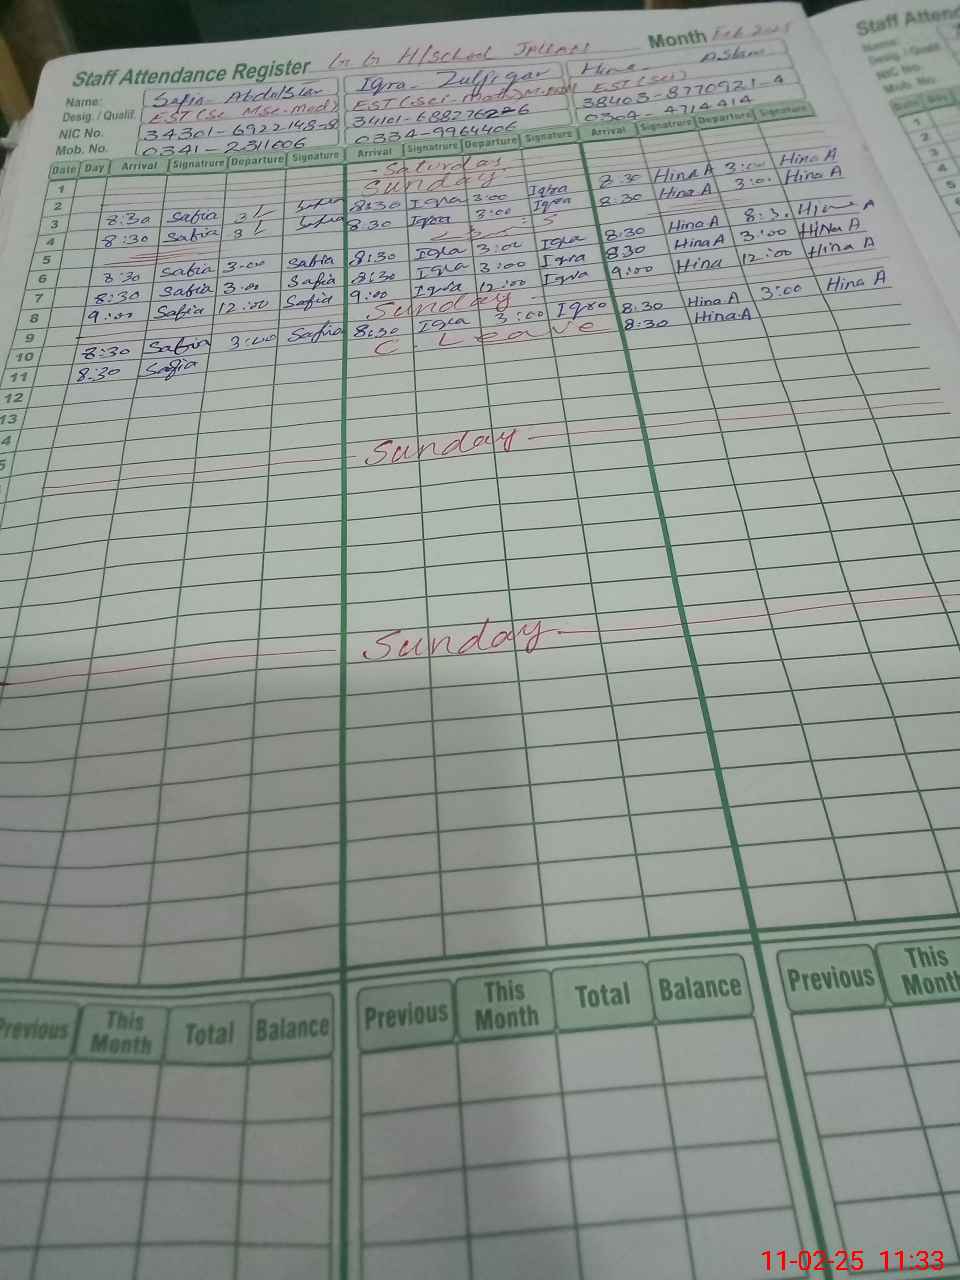 Staff Attendance Register G. G. H/School Month Feb 2025
Staff Atten
Name: Safia Iqra Zulfiqar Hina Aslam
Desig. / Qualif. EST (Sc EST (sci-math) EST (sci)
NIC No. 34301-6922148-8 38403-8770921-4
Mob. No. 0341-2311006 0334-9964406 0304-4714414
Date Day Arrival Signatrure Departure Signature Arrival Signatrure Departure Signature Arrival Signatrure Departure Signature
1 Saturday
2 Sunday
3 8:30 Safia 8:30 Iqra 3:00 Iqra 8:30 Hina A 3:00 Hina A
4 8:30 Safia 8:30 Iqra 3:00 Iqra 8:30 Hina A 3:00 Hina A
5
6 8:30 Safia 3:00 Safia 8:30 Iqra 3:00 Iqra 8:30 Hina A Hina A
7 8:30 Safia 3:00 Safia 8:30 Iqra 3:00 Iqra 8:30 Hina A 3:00 Hina A
8 9:00 Safia 12:00 Safia 9:00 Iqra 12:00 Iqra 9:00 Hina 12:00 Hina A
9 Sunday
10 8:30 Safia 3:00 Safia 8:30 Iqra 3:00 Iqra 8:30 Hina A 3:00 Hina A
11 8:30 Safia C. Leave 8:30 Hina A
12
13
4
5
Sunday
Sunday
Previous This Month Total Balance Previous This Month Total Balance Previous This Month
11-02-25 11:33